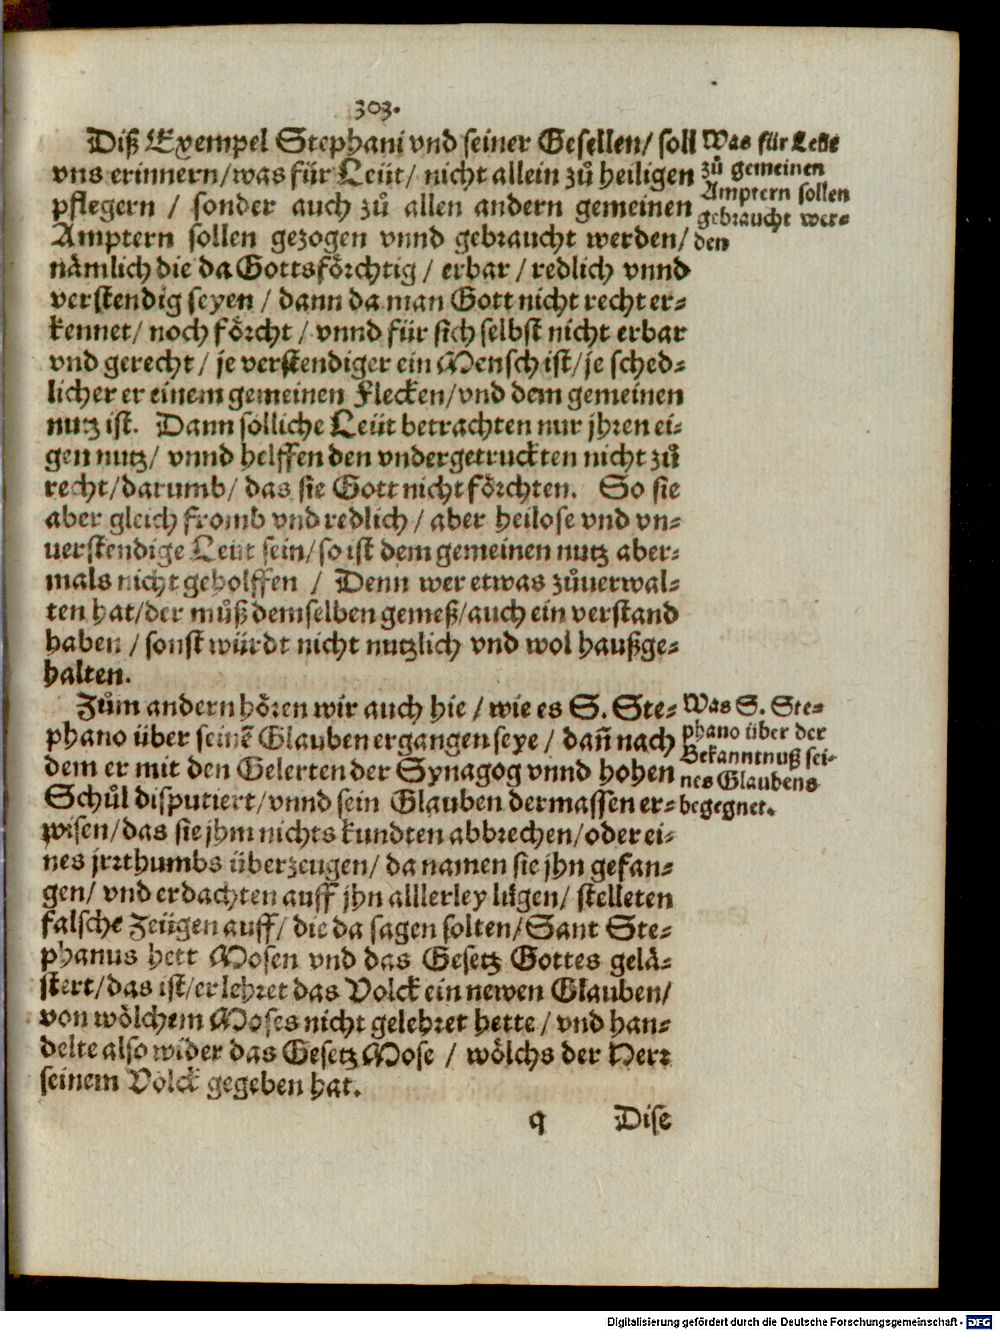 303.
Diß Exempel Stephani vnd seiner Gesellen/ soll
vns erinnern/was für Leüt/ nicht allein zů heiligen
pflegern / sonder auch zů allen andern gemeinen
Amptern sollen gezogen vnnd gebraucht werden/
nämlich die da Gottsförchtig / erbar / redlich vnnd
verstendig seyen / dann da man Gott nicht recht er-
kennet/ noch förcht / vnnd für sich selbst nicht erbar
vnd gerecht / je verstendiger ein Mensch ist/je sched-
licher er einem gemeinen Flecken/vnd dem gemeinen
nutz ist. Dann sölliche Leüt betrachten nur jhren ei-
gen nutz/ vnnd helffen den vndergetruckten nicht zů
recht/darumb/ das sie Gott nicht förchten. So sie
aber gleich fromb vnd redlich / aber heilose vnd vn-
uerstendige Leüt sein/so ist dem gemeinen nutz aber-
mals nicht geholffen / Denn wer etwas zůuerwal-
ten hat/der můß demselben gemeß/auch ein verstand
haben / sonst würdt nicht nutzlich vnd wol haußge-
halten.
Was für Leüt
zů gemeinen
Amptern sollen
gebraucht wer-
den
Zům andern hören wir auch hie / wie es S. Ste-
phano über seinē Glauben ergangen seye / dañ nach
dem er mit den Gelerten der Synagog vnnd hohen
Schůl disputiert/vnnd sein Glauben dermassen er-
wisen/das sie jhm nichts kundten abbrechen/oder ei-
nes jrrthumbs überzeugen/ da namen sie jhn gefan-
gen/ vnd erdachten auff jhn alllerley lügen/ stelleten
falsche Zeügen auff/ die da sagen solten/Sant Ste-
phanus hett Mosen vnd das Gesetz Gottes gelä-
stert/das ist/er lehret das Volck ein newen Glauben/
von wölchem Moses nicht gelehret hette / vnd han-
delte also wider das Gesetz Mose / wölchs der Herr
seinem Volck gegeben hat.
Was S. Ste-
phano über der
Bekanntnuß sei-
nes Glaubens
begegnet.
q Dise
Digitalisierung gefördert durch die Deutsche Forschungsgemeinschaft - DFG